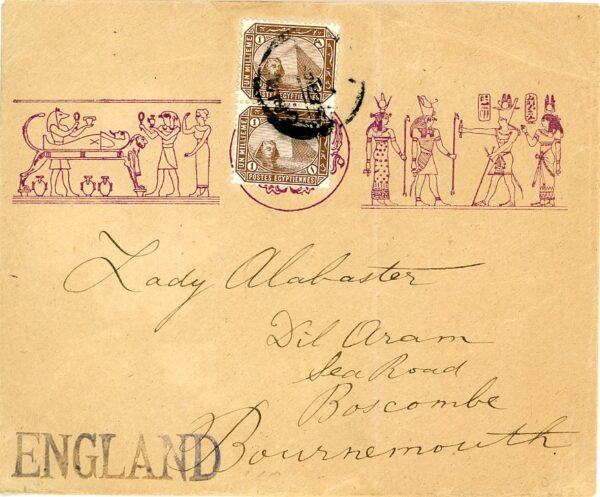 UN MILLIEME
1
1
UN MILLIEME
1
POSTES EGYPTIENNES
Lady Alabaster
Dil Aram
Sea Road
Boscombe
Bournemouth.
ENGLAND